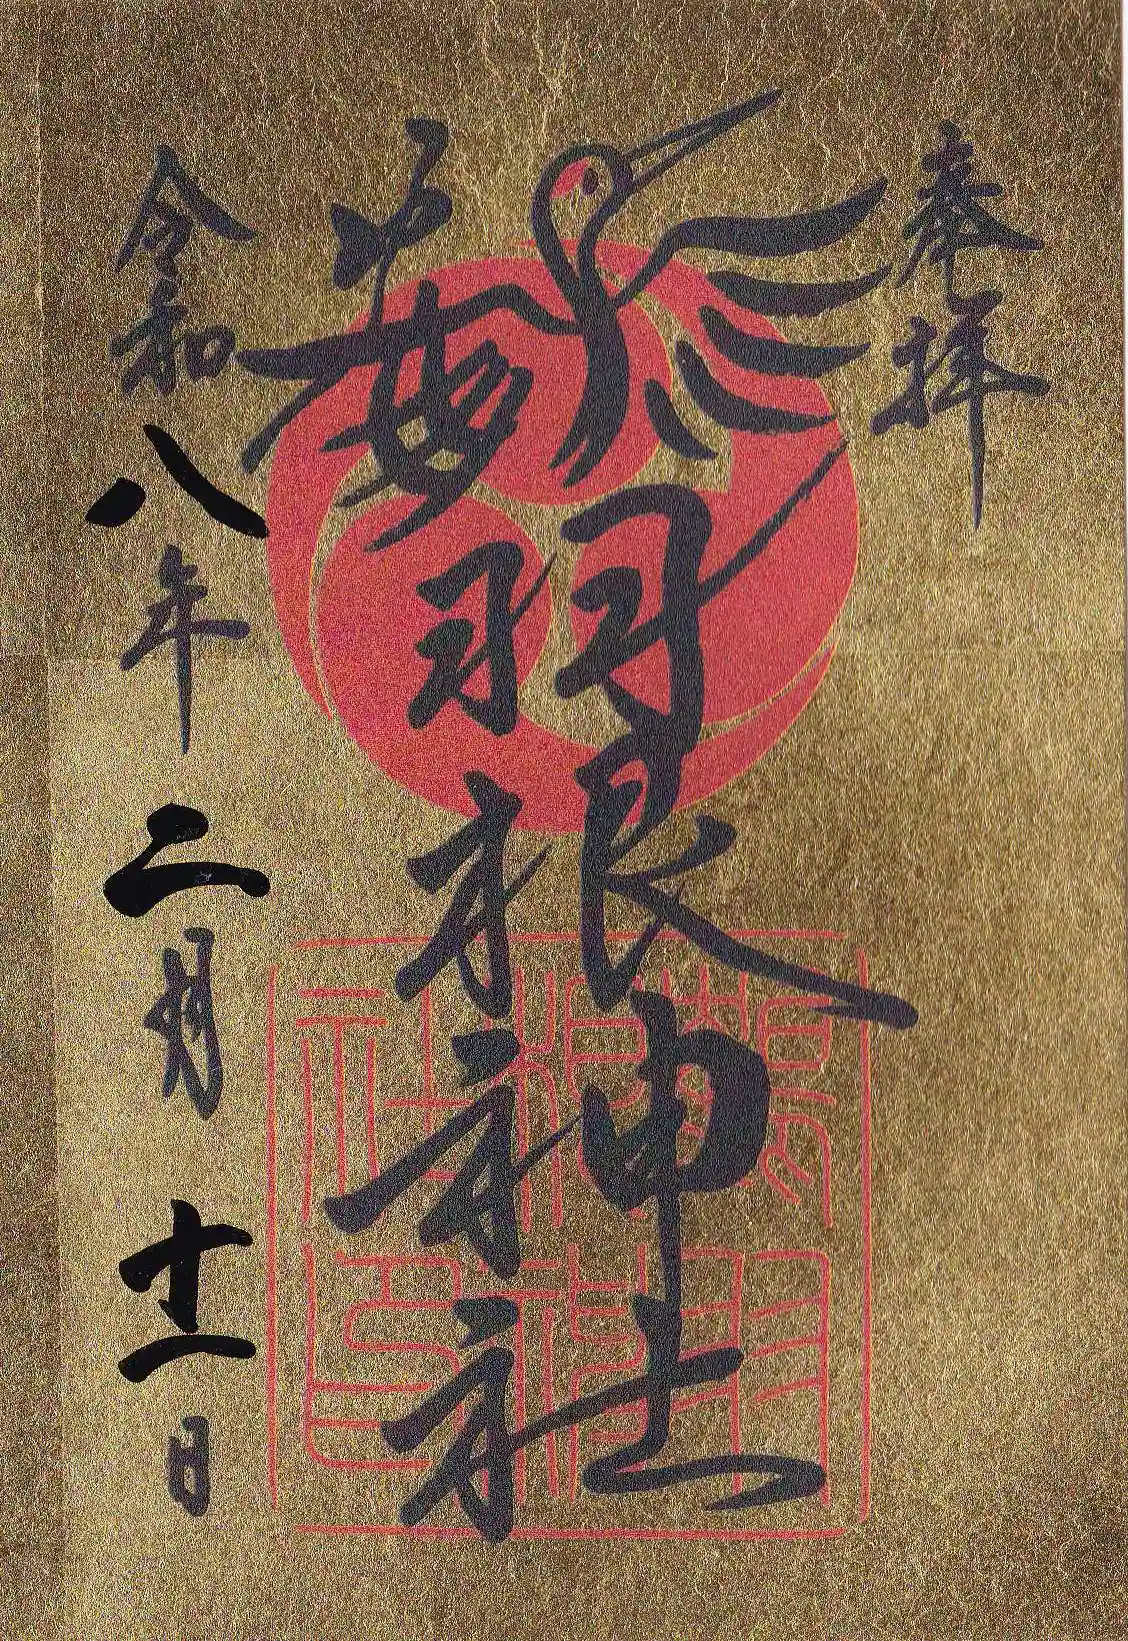 奉拝
鶴羽根神社
令和八年二月十二日
鶴羽
根神
社印